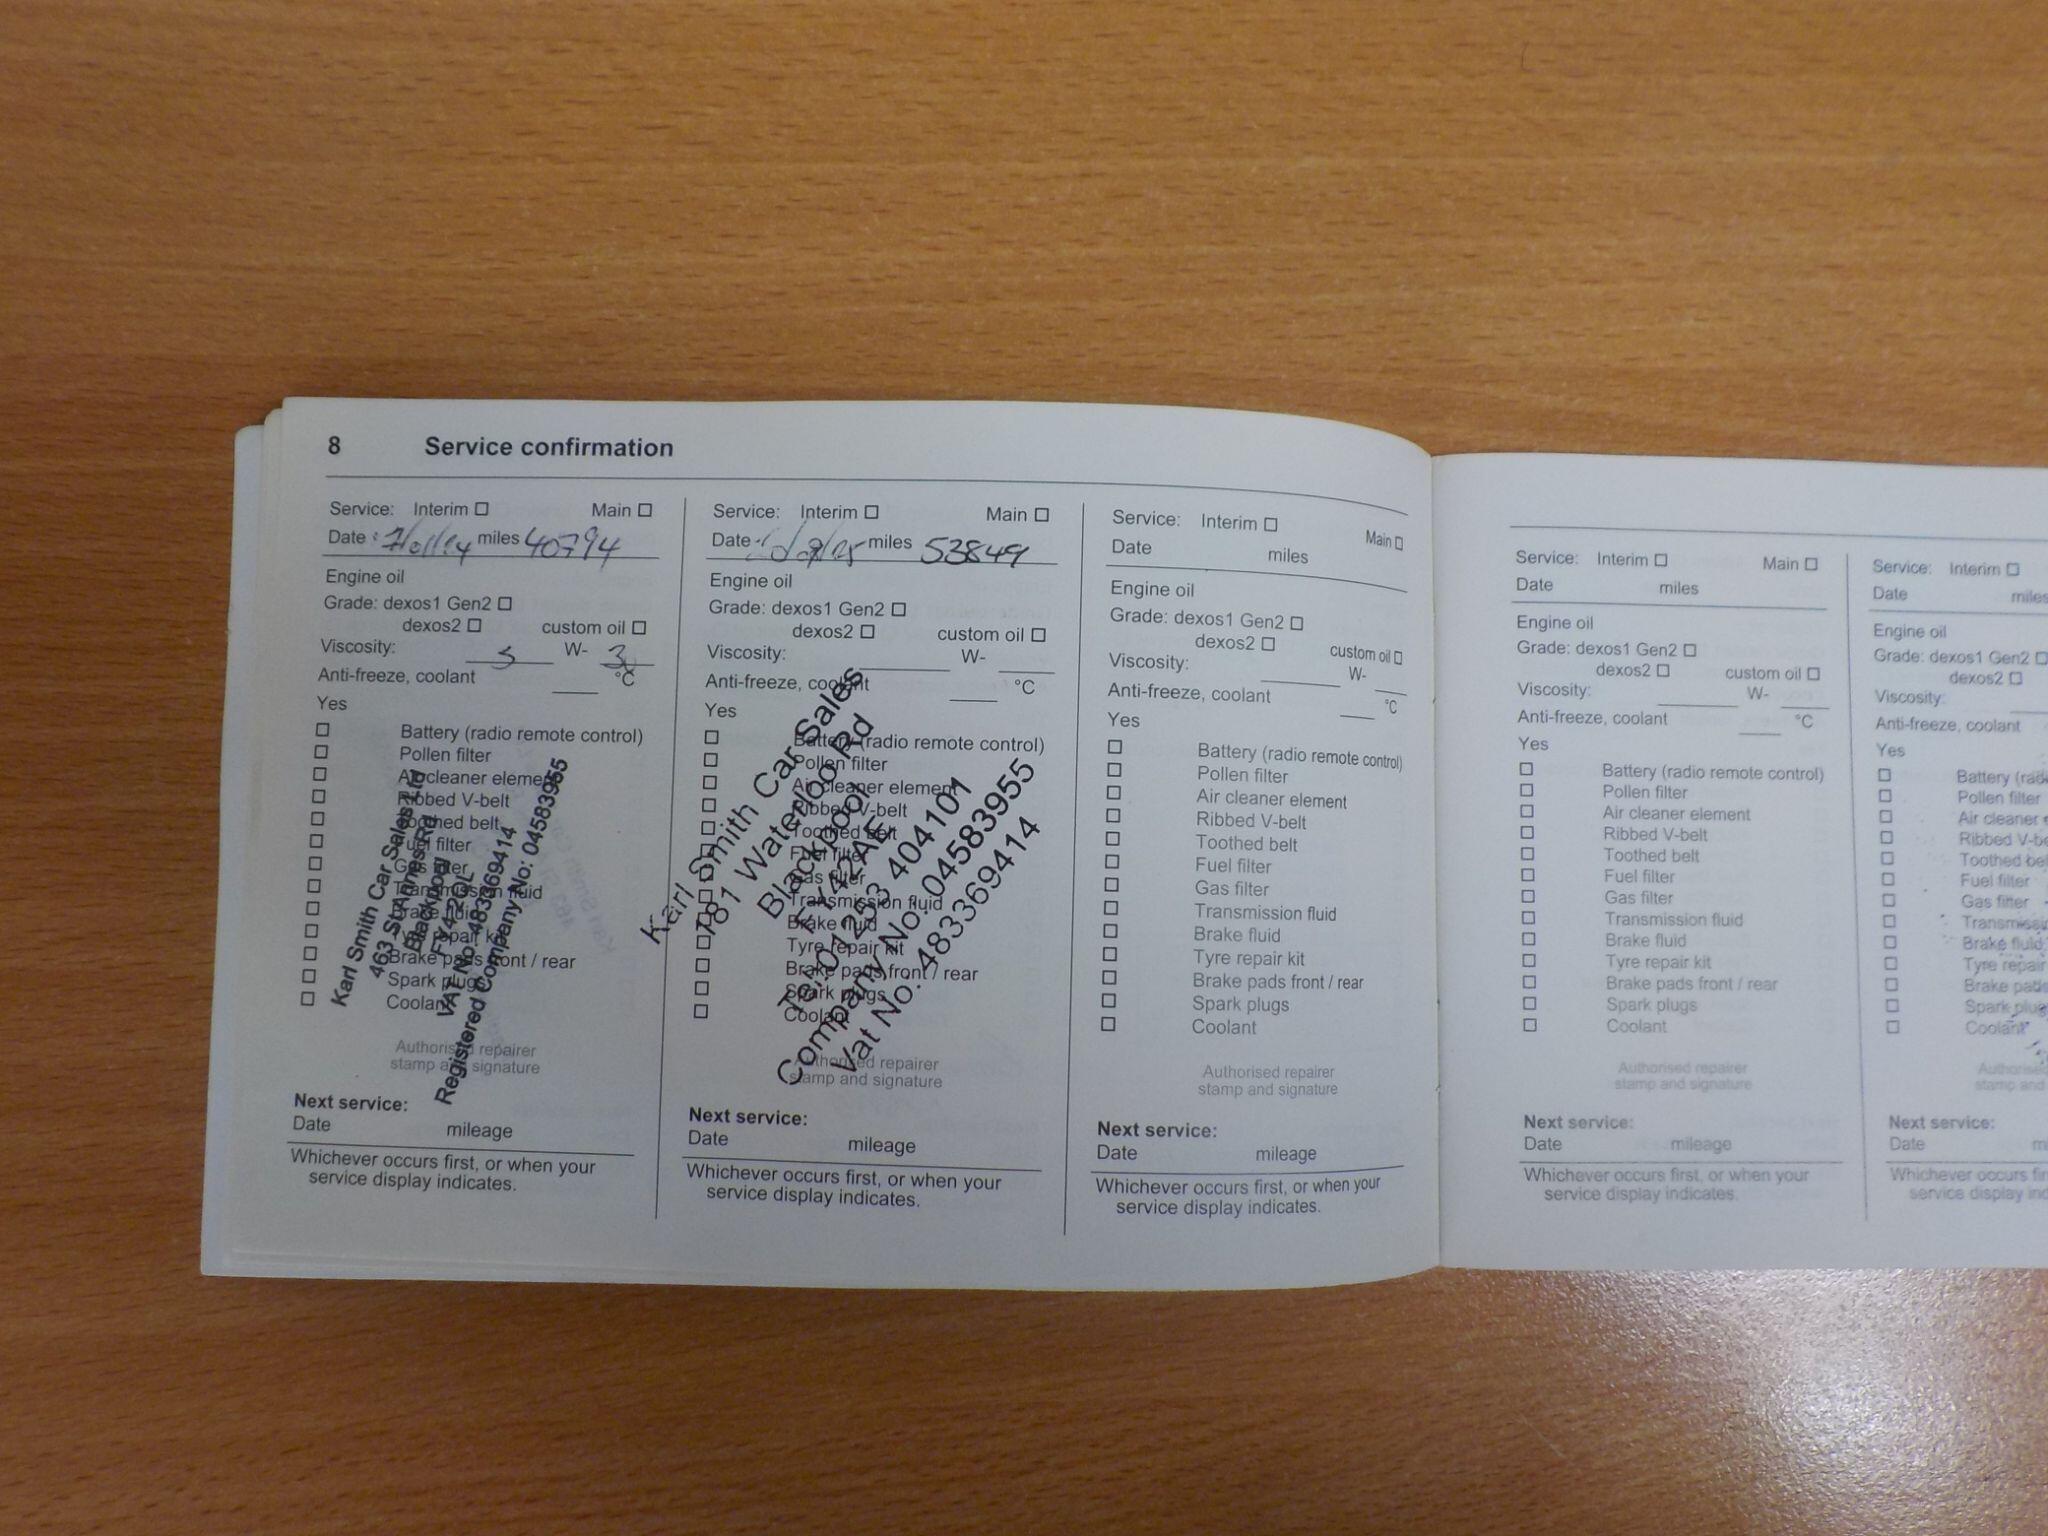 8 Service confirmation
Service: Interim Main
Date miles 40794
Engine oil
Grade: dexos1 Gen2
dexos2 custom oil
Viscosity: 5 W- 30
Anti-freeze, coolant °C
Yes
Battery (radio remote control)
Pollen filter
Air cleaner element
Ribbed V-belt
Toothed belt
Fuel filter
Gas filter
Transmission fluid
Brake fluid
repair kit
Brake pads front / rear
Spark plugs
Coolant
Karl Smith Car Sales Ltd
463 St Annes Rd
Blackpool
FY4 2QL
VAT No: 483369414
Registered Company No: 04583955
Authorised repairer
stamp and signature
Next service:
Date mileage
Whichever occurs first, or when your
service display indicates.
Service: Interim Main
Date miles 53849
Engine oil
Grade: dexos1 Gen2
dexos2 custom oil
Viscosity: W-
Anti-freeze, coolant °C
Yes
Battery (radio remote control)
Pollen filter
Air cleaner element
Ribbed V-belt
Toothed belt
Fuel filter
Gas filter
Transmission fluid
Brake fluid
Tyre repair kit
Brake pads front / rear
Spark plugs
Coolant
Karl Smith Car Sales
181 Waterloo Rd
Blackpool
FY42AE
Tel:01253 404101
Company No.04583955
Vat No. 483369414
Authorised repairer
stamp and signature
Next service:
Date mileage
Whichever occurs first, or when your
service display indicates.
Service: Interim Main
Date miles
Engine oil
Grade: dexos1 Gen2
dexos2 custom oil
Viscosity: W-
Anti-freeze, coolant °C
Yes
Battery (radio remote control)
Pollen filter
Air cleaner element
Ribbed V-belt
Toothed belt
Fuel filter
Gas filter
Transmission fluid
Brake fluid
Tyre repair kit
Brake pads front / rear
Spark plugs
Coolant
Authorised repairer
stamp and signature
Next service:
Date mileage
Whichever occurs first, or when your
service display indicates.
Service: Interim Main
Date miles
Engine oil
Grade: dexos1 Gen2
dexos2 custom oil
Viscosity: W-
Anti-freeze, coolant °C
Yes
Battery (radio remote control)
Pollen filter
Air cleaner element
Ribbed V-belt
Toothed belt
Fuel filter
Gas filter
Transmission fluid
Brake fluid
Tyre repair kit
Brake pads front / rear
Spark plugs
Coolant
Authorised repairer
stamp and signature
Next service:
Date mileage
Whichever occurs first, or when your
service display indicates.
Service: Interim
Date miles
Engine oil
Grade: dexos1 Gen2
dexos2
Viscosity:
Anti-freeze, coolant
Yes
Battery
Pollen filter
Air cleaner
Ribbed
Toothed
Fuel filter
Gas filter
Brake fluid
Tyre repair
Brake
Spark
Coolant
stamp and
Next service:
Date
Whichever occurs
service display